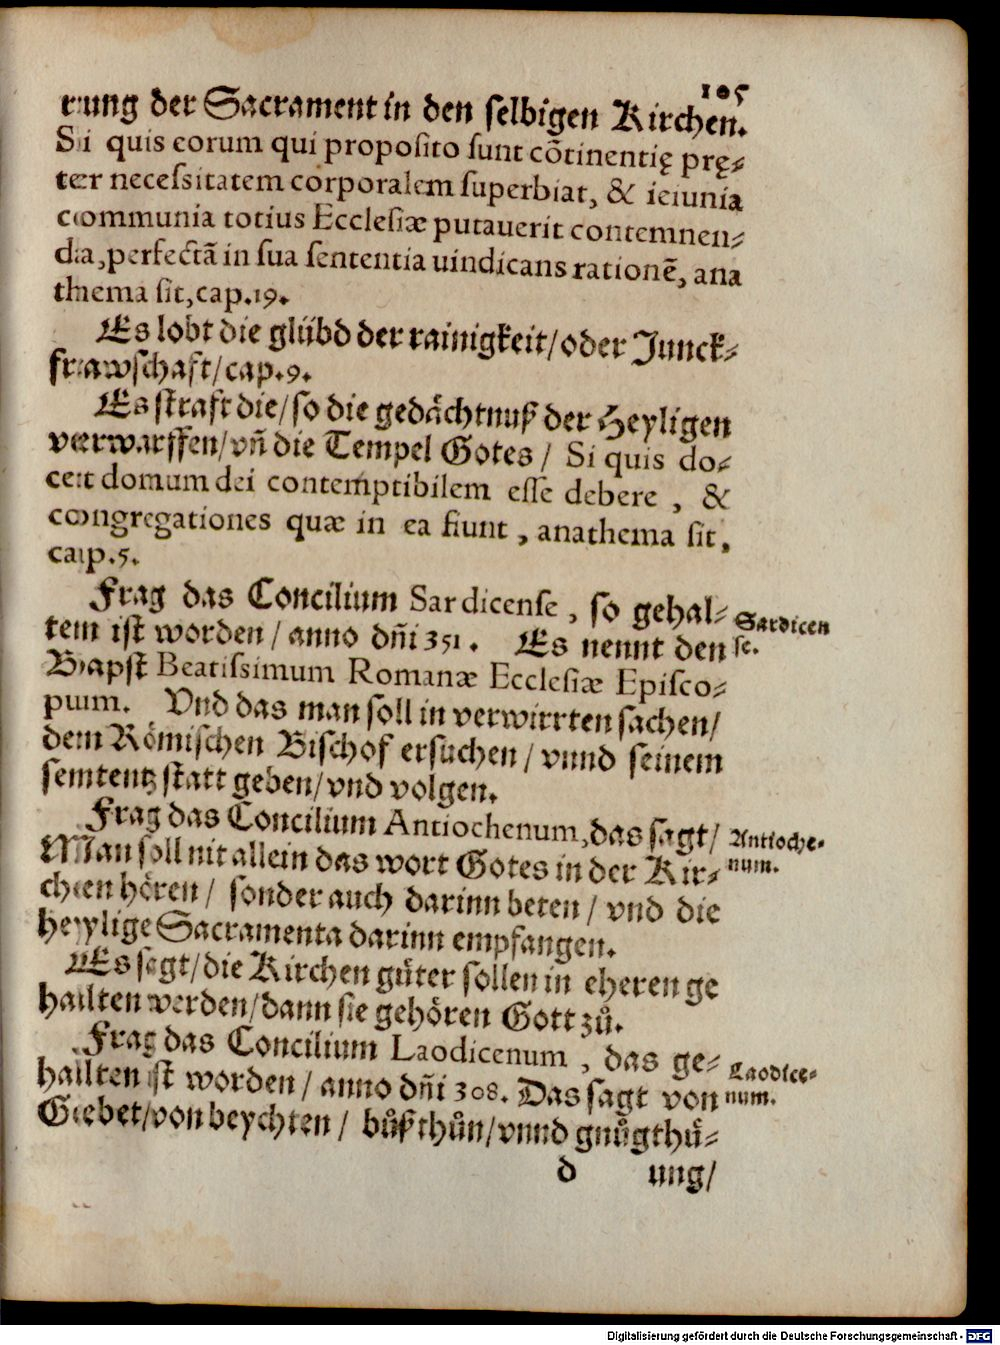 105
rung der Sacrament in den selbigen Kirchen.
Si quis eorum qui proposito sunt cõtinentię prę⸗
ter necessitatem corporalem superbiat, & ieiunia
communia totius Ecclesiæ putauerit contemnen⸗
da, perfectã in sua sententia uindicans rationẽ, ana
thema sit, cap. 19.
Es lobt die glübd der rainigkeit/ oder Junck⸗
frawschaft/ cap. 9.
Es straft die/ so die gedächtnuß der Heyligen
verwarffen/ vñ die Tempel Gotes/ Si quis do⸗
cet domum dei contemptibilem esse debere, &
congregationes quæ in ea fiunt, anathema sit,
cap. 5.
Frag das Concilium Sardicense, so gehal⸗
ten ist worden/ anno dñi 351. Es nennt den
Bapst Beatissimum Romanæ Ecclesiæ Episco⸗
pum. Vnd das man soll in verwirrten sachen/
dem Römischen Bischof ersuchen/ vnnd seinem
sententz statt geben/ vnd volgen.
Frag das Concilium Antiochenum, das sagt/
Man soll nit allein das wort Gotes in der Kir⸗
chen hören/ sonder auch darinn beten/ vnd die
heylige Sacramenta darinn empfangen.
Es sagt/ die Kirchen güter sollen in eheren ge
halten werden/ dann sie gehören Gott zů.
Frag das Concilium Laodicenum, das ge⸗
halten ist worden/ anno dñi 308. Das sagt von
Gebet/ von beychten/ bůßthůn/ vnnd gnůgthů⸗
d ung/
Sardicen
se.
Antioche⸗
num.
Laodice⸗
num.
Digitalisierung gefördert durch die Deutsche Forschungsgemeinschaft - DFG